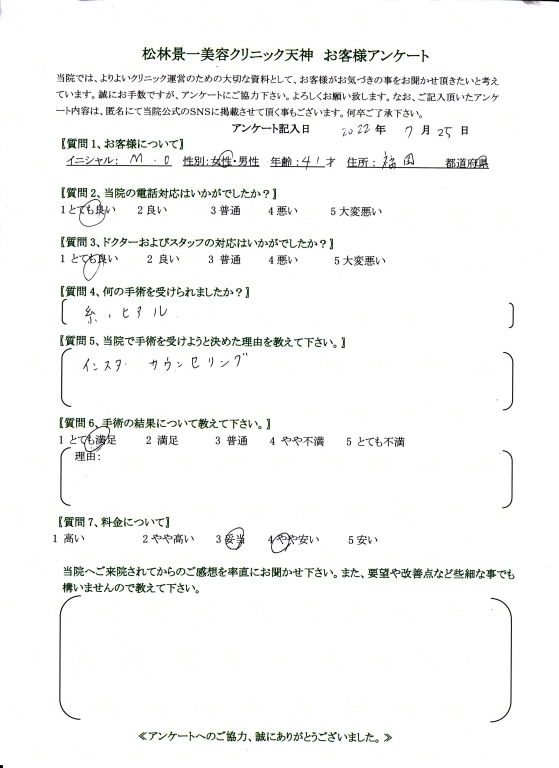 松林景一美容クリニック天神　お客様アンケート
当院では、よりよいクリニック運営のための大切な資料として、お客様がお気づきの事をお聞かせ頂きたいと考え
ています。誠にお手数ですが、アンケートにご協力下さい。よろしくお願い致します。なお、ご記入頂いたアンケ
ート内容は、匿名にて当院公式のSNSに掲載させて頂く事もございます。何卒ご了承下さい。
アンケート記入日　2022 年　7 月 25 日
【質問1、お客様について】
イニシャル： M . O　性別：女性・男性　年齢：41才　住所： 福岡　都道府県
【質問2、当院の電話対応はいかがでしたか？】
1 とても良い　2 良い　3 普通　4 悪い　5 大変悪い
【質問3、ドクターおよびスタッフの対応はいかがでしたか？】
1 とても良い　2 良い　3 普通　4 悪い　5 大変悪い
【質問4、何の手術を受けられましたか？】
糸、ヒアル
【質問5、当院で手術を受けようと決めた理由を教えて下さい。】
インスタ　カウンセリング
【質問6、手術の結果について教えて下さい。】
1 とても満足　2 満足　3 普通　4 やや不満　5 とても不満
理由：
【質問7、料金について】
1 高い　2 やや高い　3 妥当　4 やや安い　5 安い
当院へご来院されてからのご感想を率直にお聞かせ下さい。また、要望や改善点など些細な事でも
構いませんので教えて下さい。
≪アンケートへのご協力、誠にありがとうございました。≫